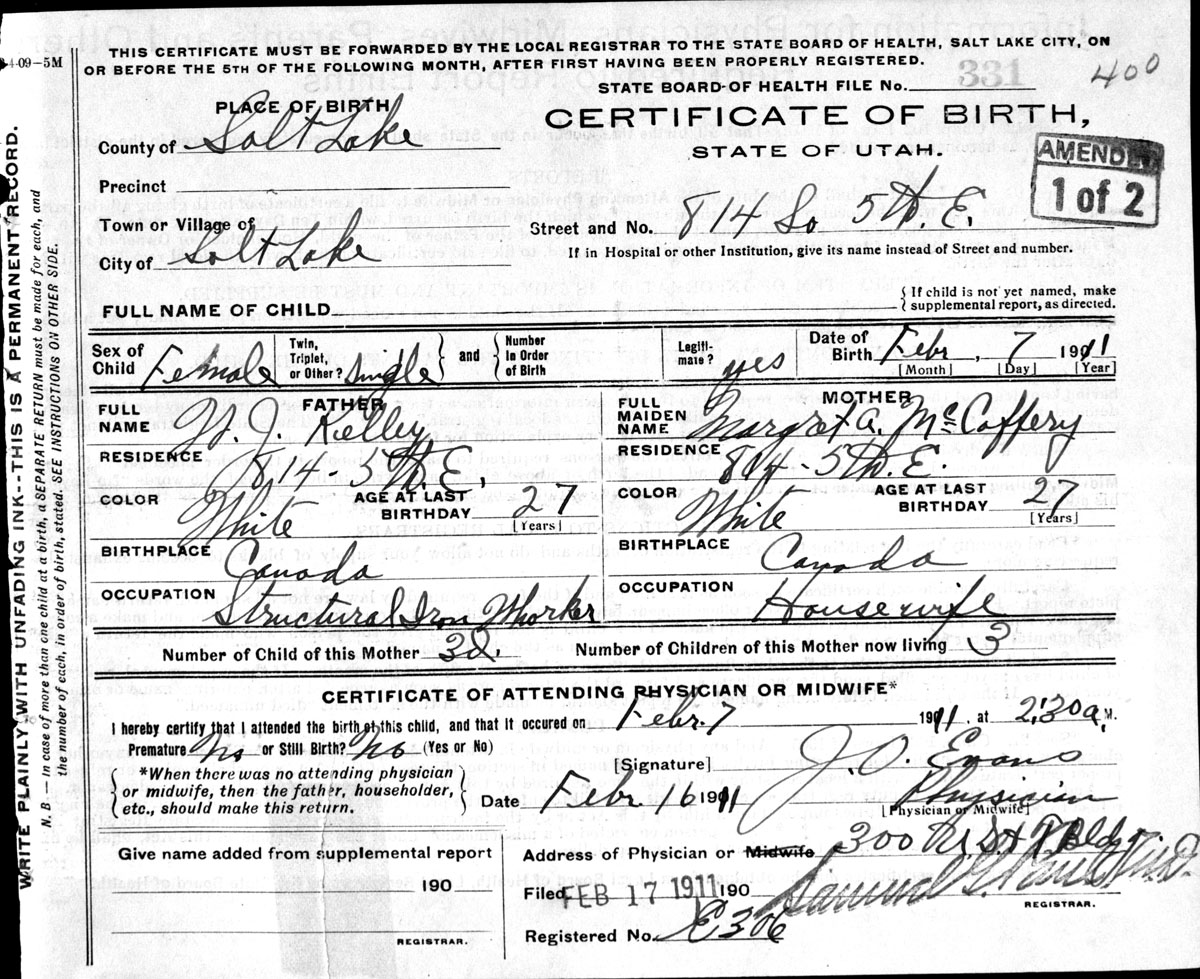 4-09-5M
THIS CERTIFICATE MUST BE FORWARDED BY THE LOCAL REGISTRAR TO THE STATE BOARD OF HEALTH, SALT LAKE CITY, ON
OR BEFORE THE 5TH OF THE FOLLOWING MONTH, AFTER FIRST HAVING BEEN PROPERLY REGISTERED.
331
400
STATE BOARD OF HEALTH FILE No.
PLACE OF BIRTH
CERTIFICATE OF BIRTH,
STATE OF UTAH.
AMENDED
1 of 2
County of Salt Lake
Precinct
Town or Village of
Street and No. 814 So. 5th E.
City of Salt Lake
If in Hospital or other Institution, give its name instead of Street and number.
FULL NAME OF CHILD
{If child is not yet named, make
supplemental report, as directed.
Sex of Child Female
Twin, Triplet, or Other? Single
and
Number in Order of Birth
Legiti-mate? yes
Date of Birth Febr, 7 1911
[Month] [Day] [Year]
FATHER
FULL NAME Kelley
RESIDENCE 814-5th. E,
COLOR White
AGE AT LAST BIRTHDAY 27
[Years]
BIRTHPLACE Canada
OCCUPATION Structural Iron Worker
MOTHER
FULL MAIDEN NAME Margret A. McCaffery
RESIDENCE 814-5th. E.
COLOR White
AGE AT LAST BIRTHDAY 27
[Years]
BIRTHPLACE Canada
OCCUPATION Housewife
Number of Child of this Mother 3d.
Number of Children of this Mother now living 3
CERTIFICATE OF ATTENDING PHYSICIAN OR MIDWIFE*
I hereby certify that I attended the birth of this child, and that it occured on Febr. 7 1911, at 2:30 a. M.
Premature No or Still Birth? No (Yes or No)
[Signature] J. O. Evans
*When there was no attending physician
or midwife, then the father, householder,
etc., should make this return.
Date Febr 16 1911
Physician
[Physician or Midwife]
Give name added from supplemental report
190
REGISTRAR.
Address of Physician or Midwife 300 Bldg.
Filed FEB 17 1911 190
Samuel
REGISTRAR.
Registered No. E306
WRITE PLAINLY WITH UNFADING INK--THIS IS A PERMANENT RECORD.
N. B. In case of more than one child at a birth, a SEPARATE RETURN must be made for each, and
the number of each, in order of birth, stated. SEE INSTRUCTIONS ON OTHER SIDE.